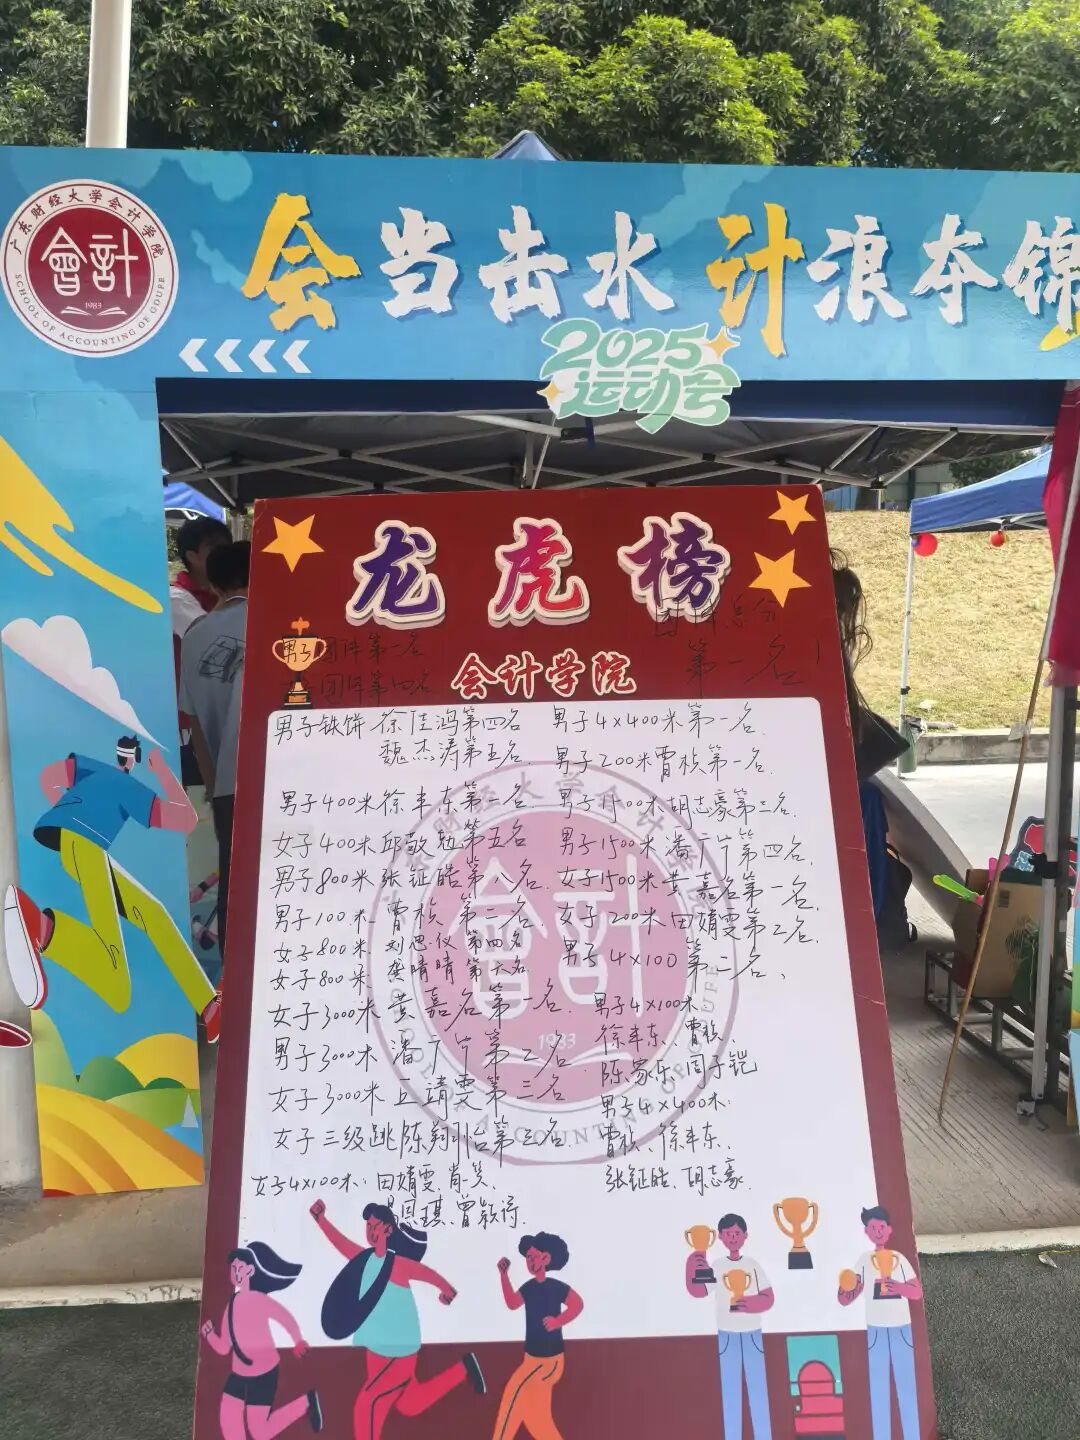 广东财经大学会计学院
會計
1983
SCHOOL OF ACCOUNTING OF GDUFE
会当击水 计浪夺锦
2025
运动会
龙虎榜
团体总分
第一名!
男子团体第一名
女子团体第四名
会计学院
男子铁饼 徐佳鸿第四名
魏杰涛第五名.
男子400米徐丰东第一名.
女子400米邱敬勉第五名
男子800米张钲皓第八名.
男子100米 曹桢 第二名
女子800米 刘思仪 第四名
女子800米 龚晴晴 第六名
女子3000米 黄嘉名第一名.
男子3000米 潘广竹第二名
女子3000米 丘靖雯第三名
女子三级跳陈翔怡第三名
女子4×100米: 田婧雯、肖笑、
易思琪、曾颖诗.
男子4×400米第一名.
男子200米曹桢第一名.
男子1500米胡志豪第三名.
男子1500米潘广竹第四名.
女子1500米黄嘉名第一名.
女子200米田婧雯第三名.
男子4×100 第二名、
男子4×100米
徐丰东、曹桢、
陈家乐、周子铠
男子4×400米:
曹桢、徐丰东、
张钲皓、胡志豪.
會計
1983